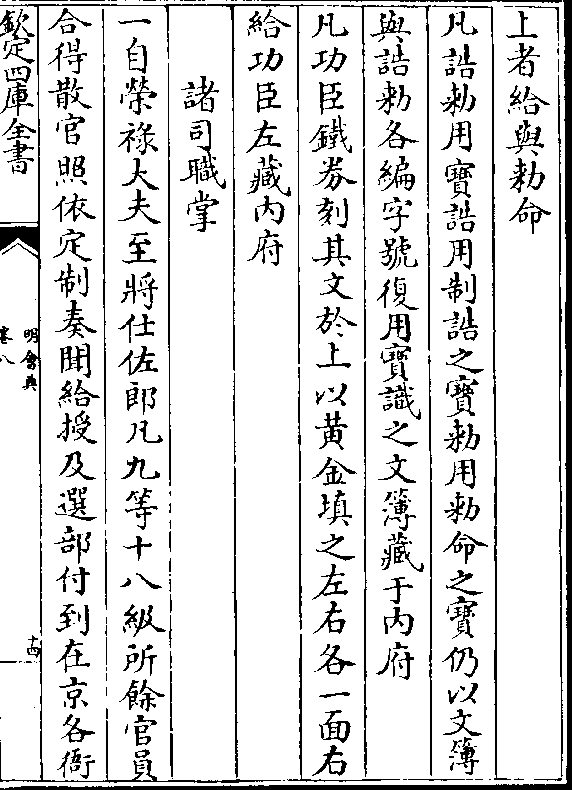 上者給與勅命
凡誥勅用寶誥用制誥之寶勅用勅命之寶仍以文簿
與誥勅各編字號復用寶識之文簿藏于内府
凡功臣鐵券刻其文於上以黄金填之左右各一面右
給功臣左藏内府
諸司職掌
一自榮祿大夫至將仕佐郎凡九等十八級所餘官員
合得散官照依定制奏聞給授及選部付到在京各衙
欽定四庫全書
明會典
卷八
十四